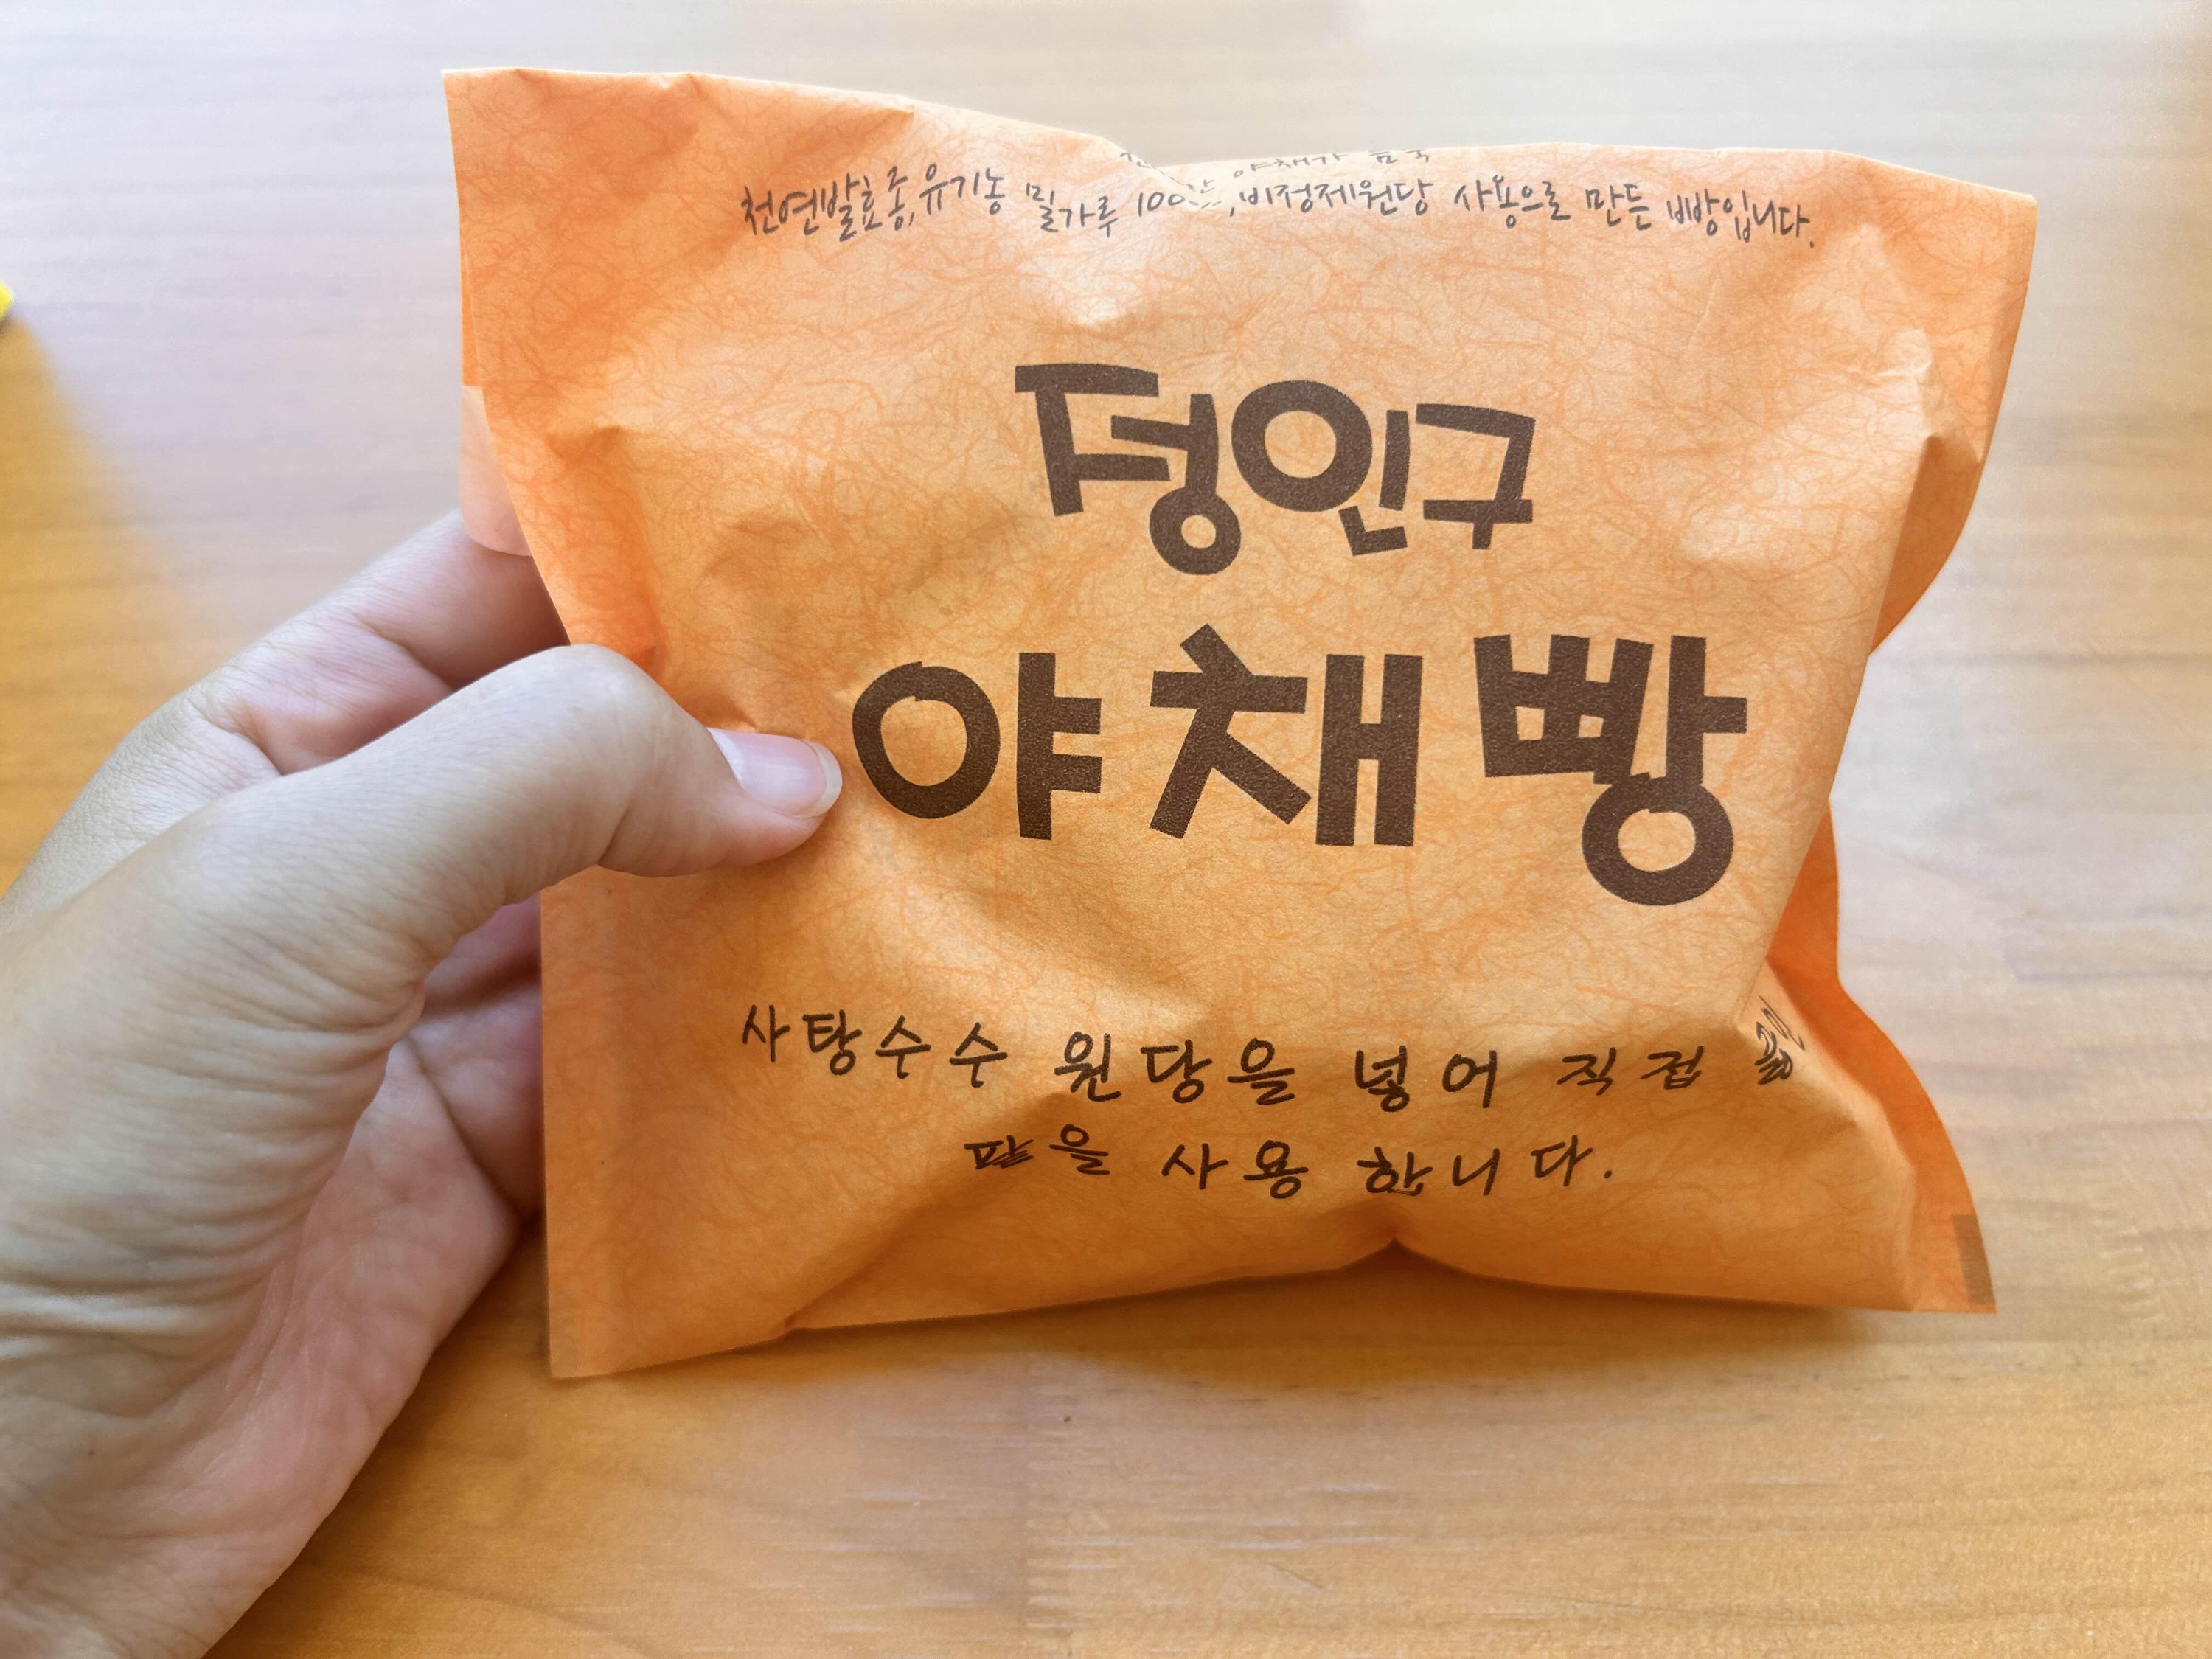 야채가 듬뿍
천연발효종,유기농 밀가루 ,비정제원당 사용으로 만든 빵입니다.
정인구
야채빵
사탕수수 원당을 넣어 직접
팥을 사용 합니다.